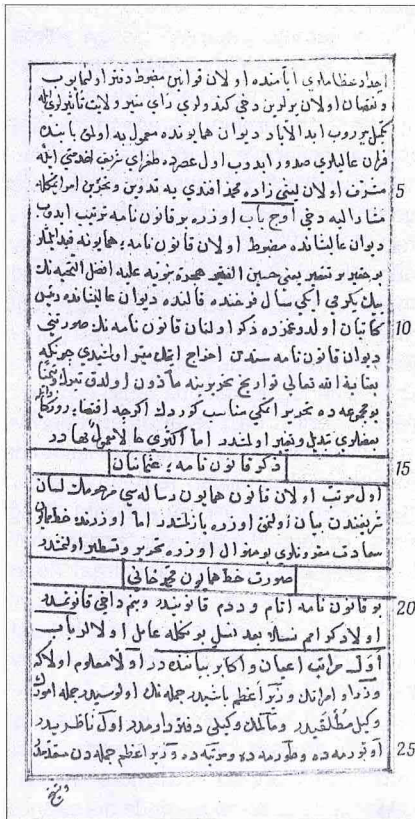 اجداد عظاملری ایامنده اولان قوانین مضبوط دفتر اولمایوب
و نقصان اولان یرلرین دخی کندو رای
تکمیل بیوروب ابد الآباد دیوان همایونده معمول به اولمق باشنده
فرمان عالیلری صدور ایدوب اول عصرده طغرای شریف خدمتی ایله
مشرف اولان لیثی زاده محمد افندی یه تدوین و تحریرن امر
5
مشار الیه دخی اوج باب اوزره بو قانون نامه ترتیب ایدوب
دیوان عالیشانده مضبوط اولان قانون نامه همایونه
بو حقیر پر تقصیر یعنی حسین الفقیر هجرت نبویه علیه افضل التحیه نك
بیك یکرمی ایکی سال فرخنده فالنده دیوان عالیشانده رئیس
کاتبان اولدوغمزده ذکر اولنان قانون نامه نك صورتنی
10
دیوان قانون نامه سندن اخراج ایتمك میسر اولمشیدی چونکه
بعنایة الله تعالی تواریخ تحریرینه مأذون اولدق
بو مجموعه ده تحریر اتمکی مناسب کوردك اکرچه
بعضلری تبدیل و تغییر اولمشدر اما اکثری حالا معمول بها در
ذکر قانون نامه عثمانیان
15
اول مرتب اولان قانون همایون رساله سی مرحومك لسان
شریفندن بیان اولنمق اوزره یازلمشدر اما اوزرنده خط همایون
سعادت مقرونلری بو منوال اوزره تحریر و تسطیر اولمشدر
صورت خط همایون محمد خانی
بو قانون نامه اتام و ددم قانونیدر و بنم دخی قانونمدر
20
اولاد کرامم نسلا بعد نسل بونكله عامل اولالر باب
اول مراتب اعیان و اکابر بیاننده در اولا معلوم اولا که
وزرا و امرانك وزیر اعظم باشیدر جمله نك اولوسیدر جمله امورك
وکیل مطلقیدر و مالمك وکیلی دفترداریمدر اول ناظریدر
اوتورمه ده و طورمه ده و مرتبه ده وزیر اعظم جمله دن مقدمدر
25